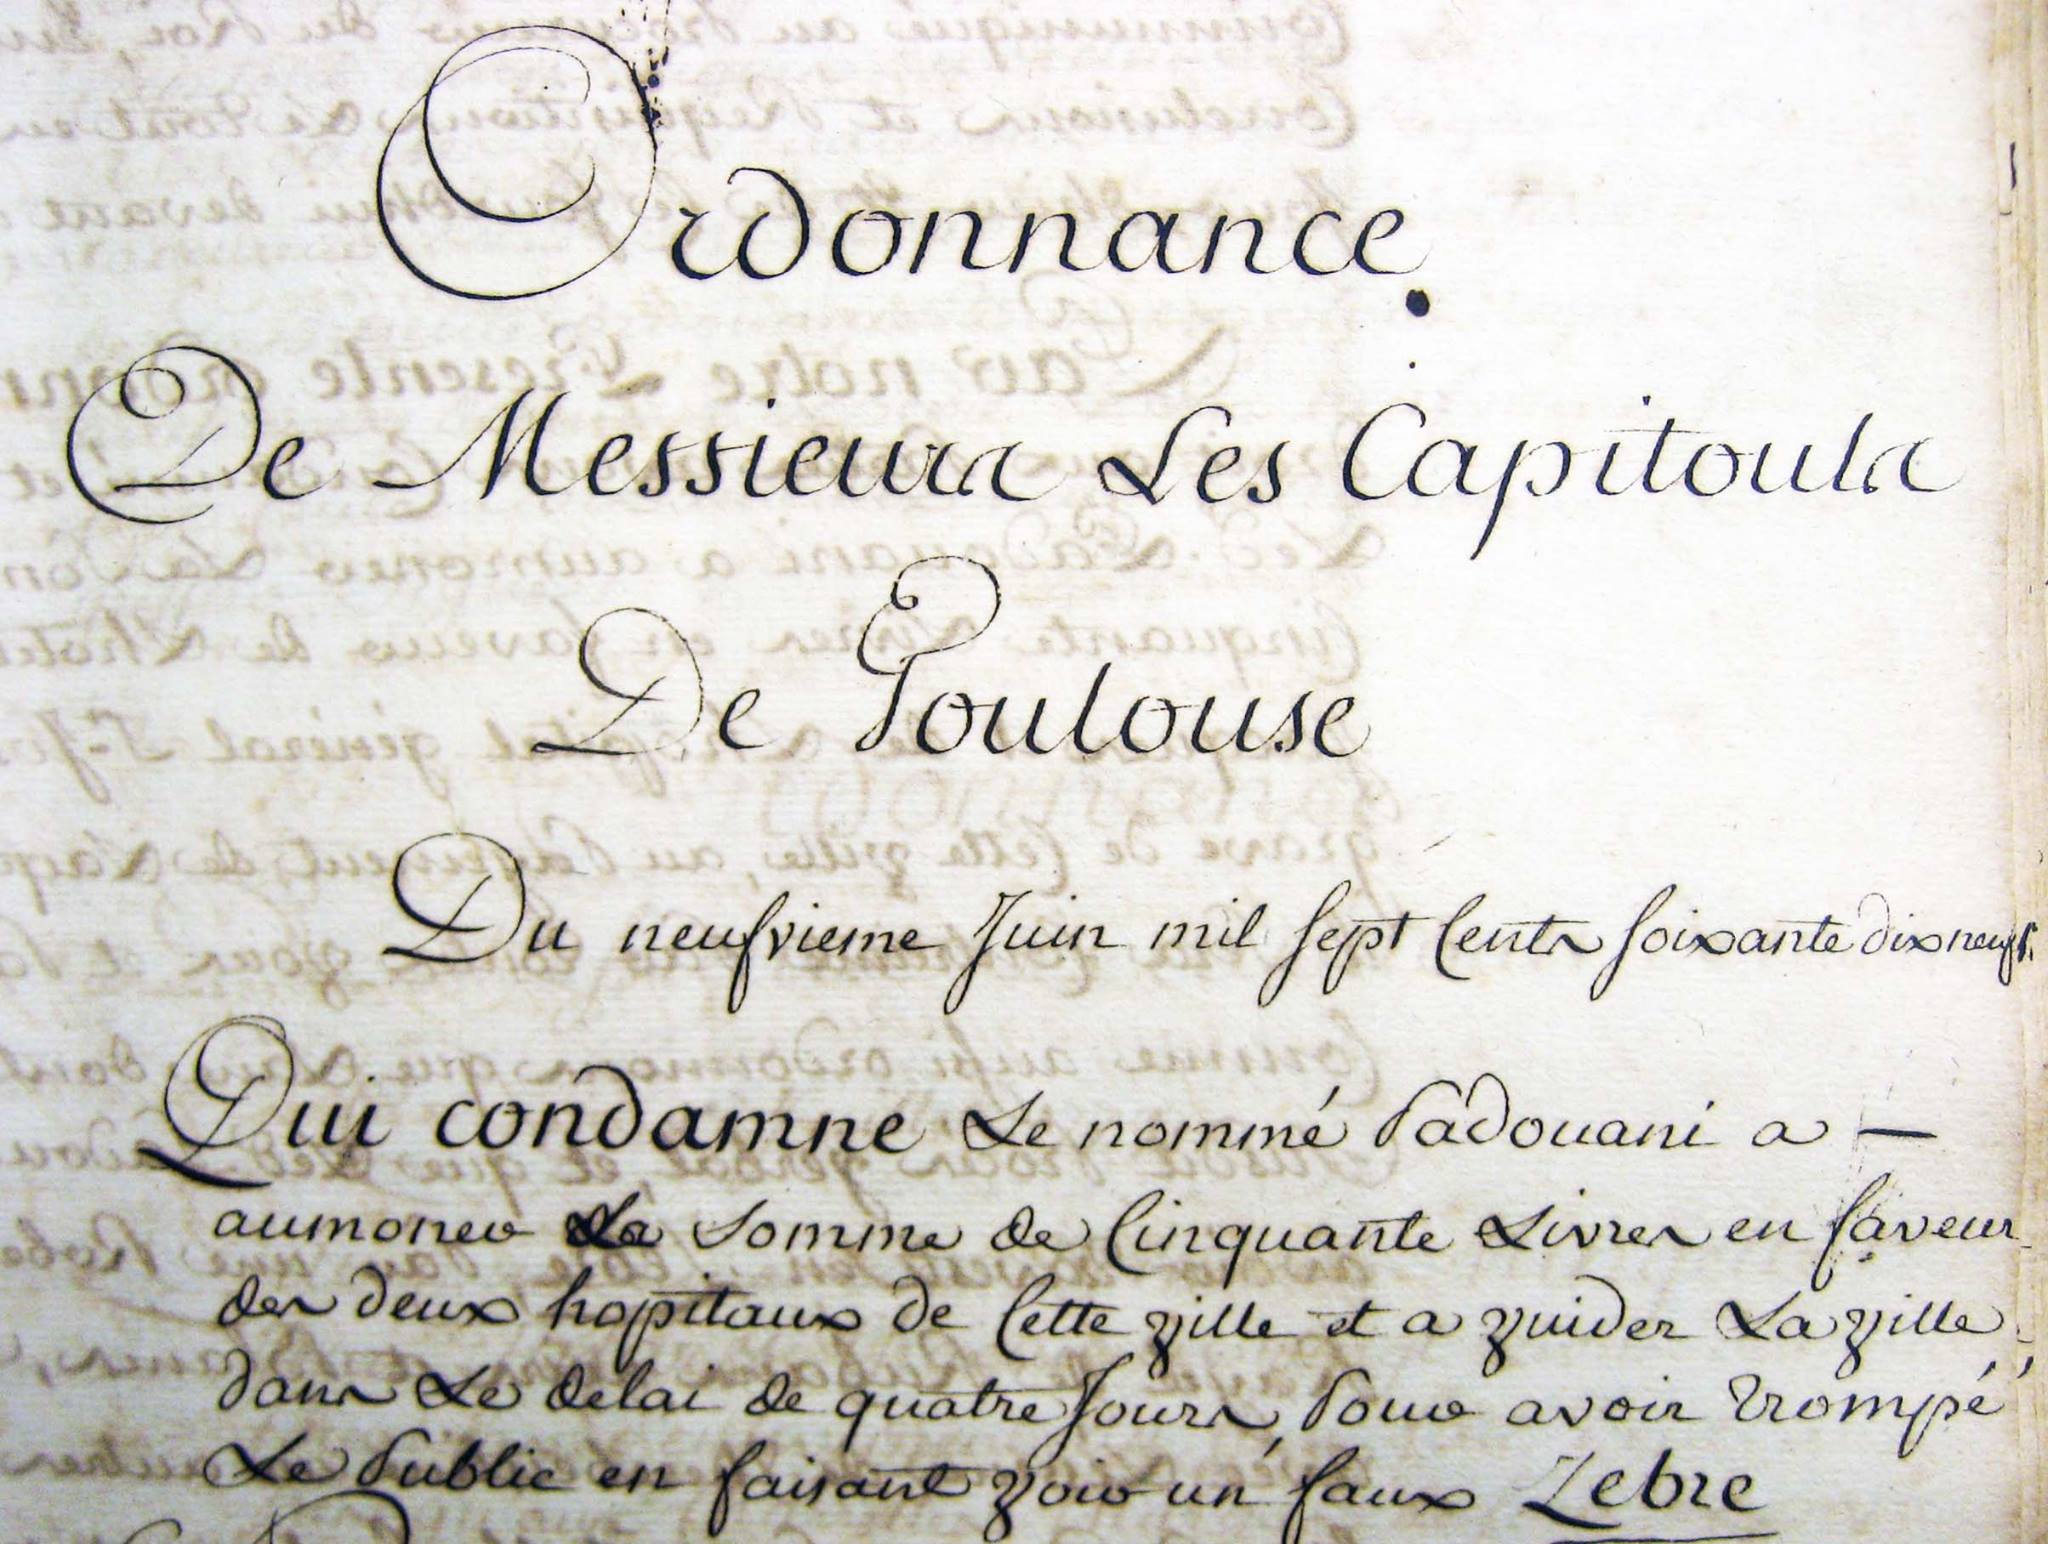 Ordonnance
De Messieurs Les Capitouls
De Toulouse
Du neufvieme Juin mil sept Cents soixante dix neuf.
Qui condamne Le nommé Padouani a —
aumoner La Somme de Cinquante Livres en faveur
des deux hopitaux de Cette ville et a vuider La ville
dans Le delai de quatre Jours, Pour avoir Trompé
Le Public en faisant voir un faux Zebre